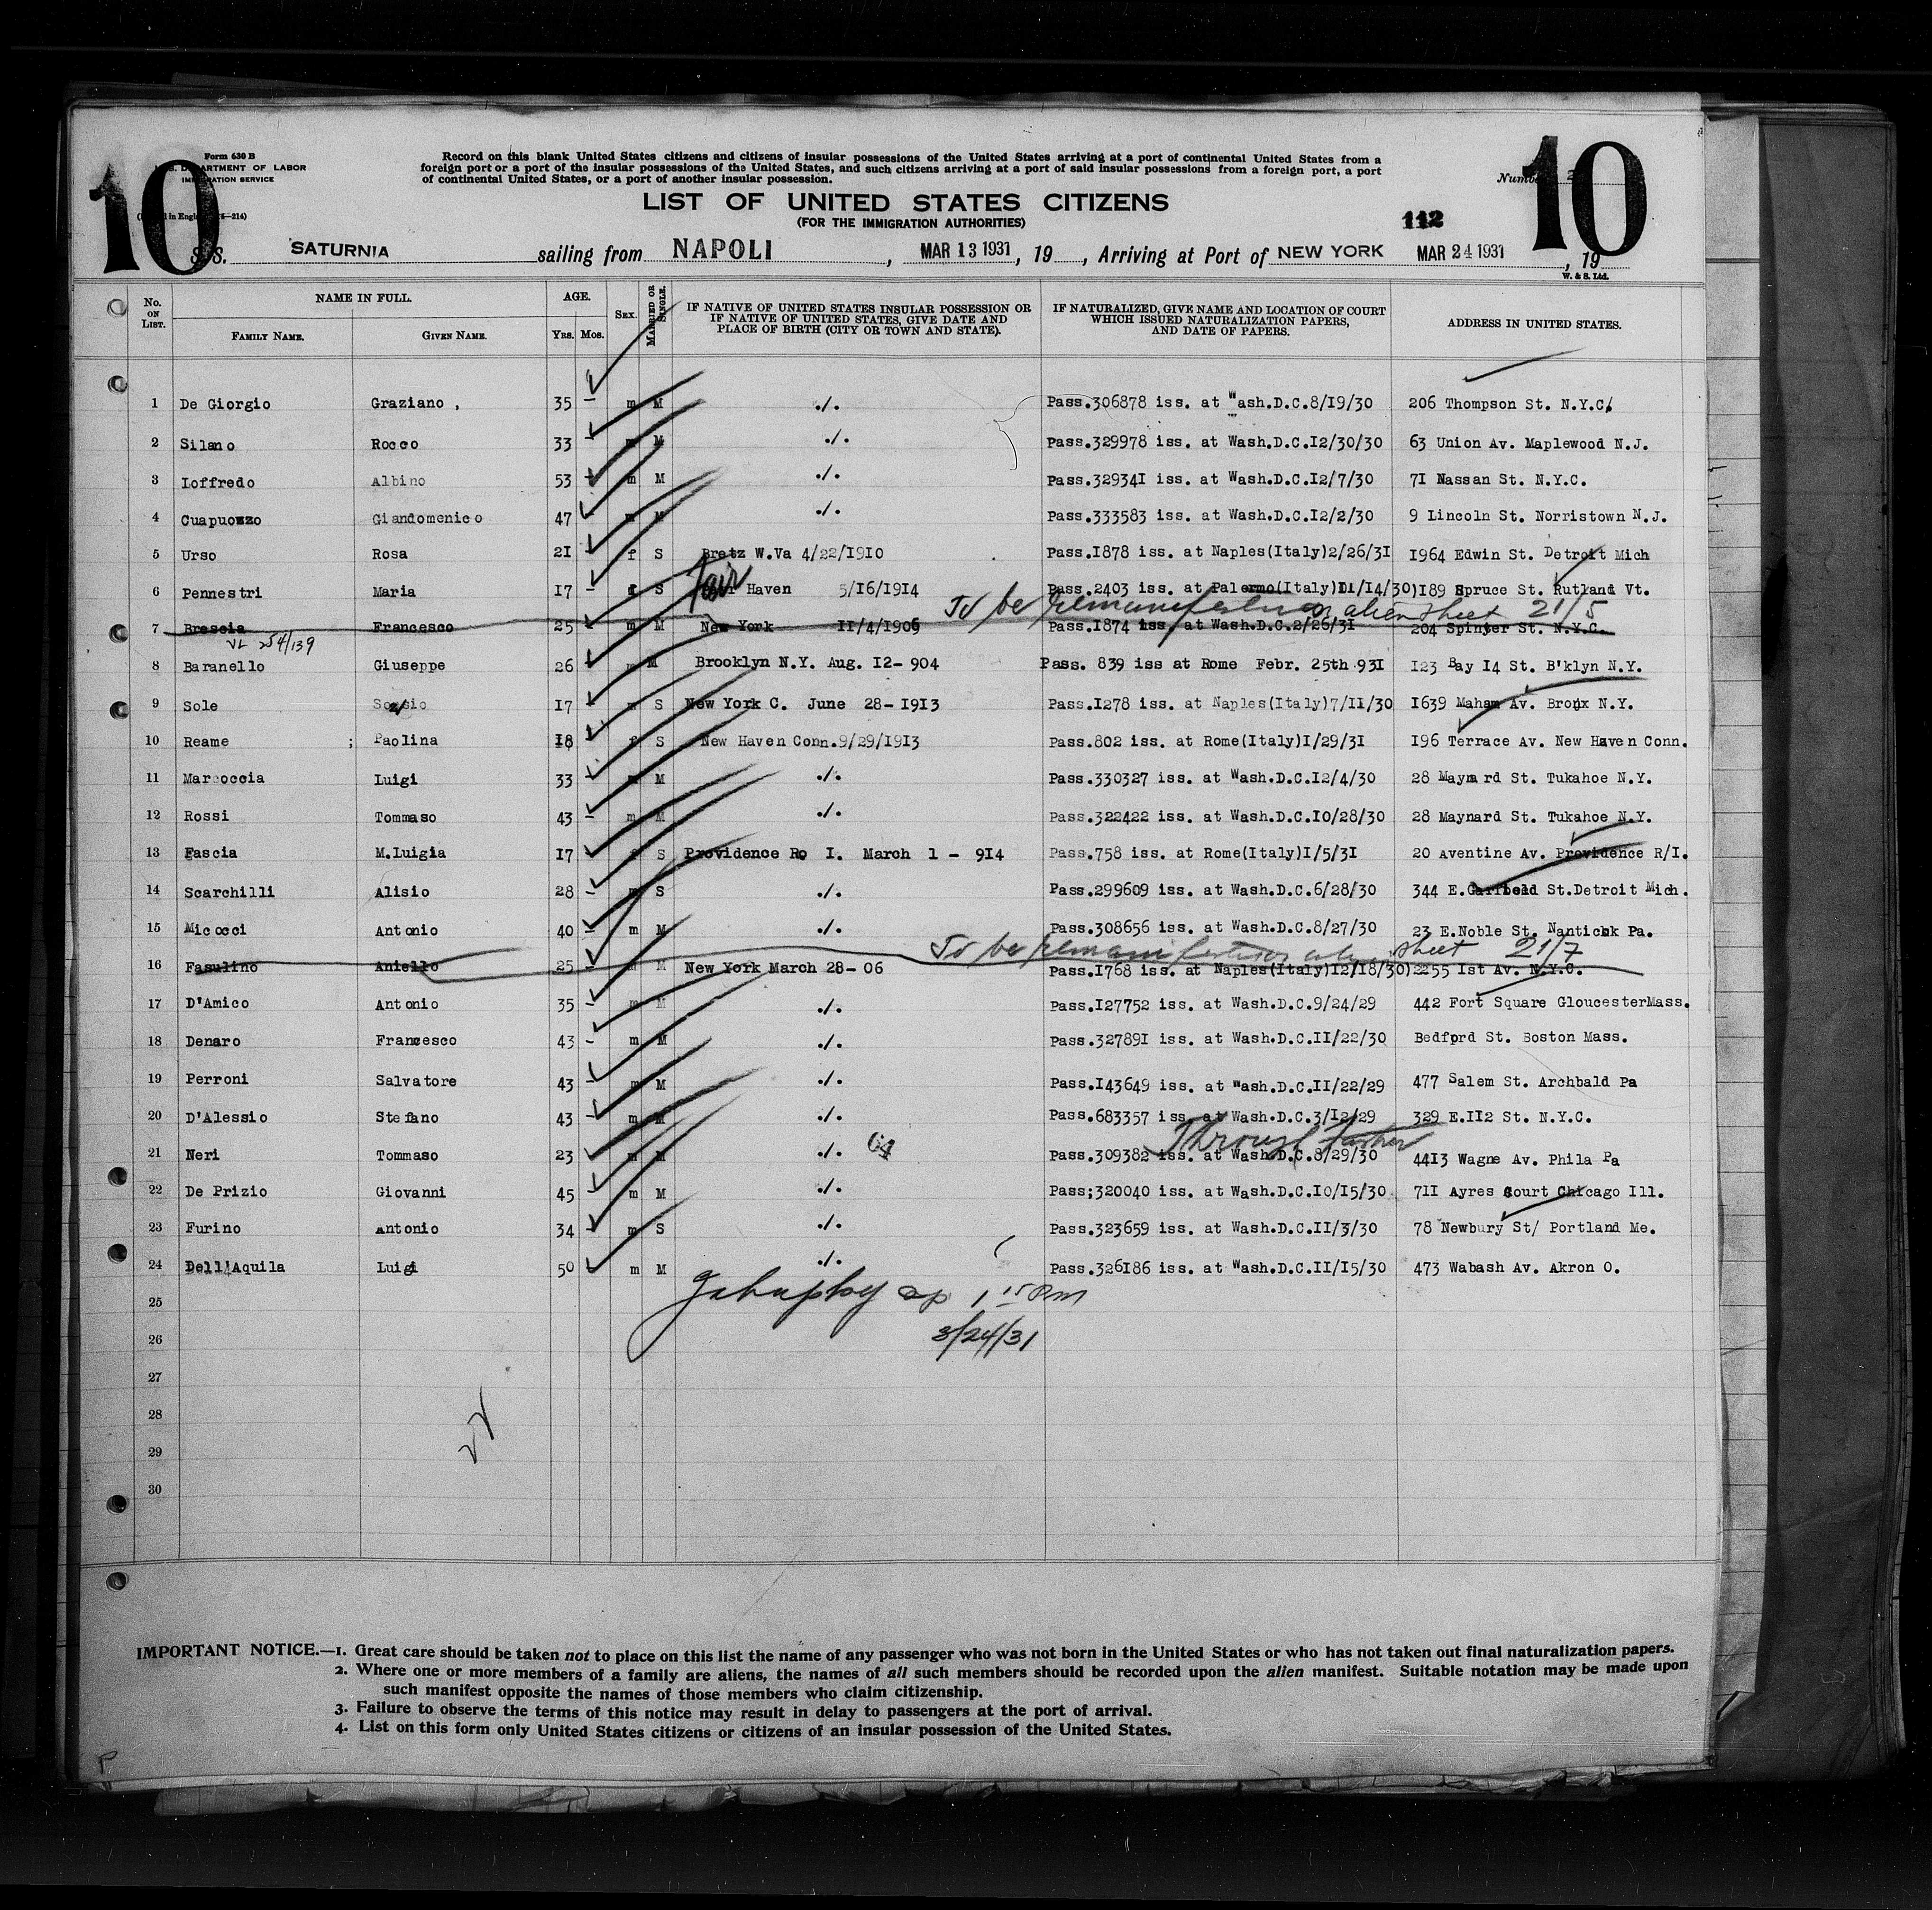 10
10
Form 630 B
DEPARTMENT OF LABOR
IMMIGRATION SERVICE
Record on this blank United States citizens and citizens of insular possessions of the United States arriving at a port of continental United States from a
foreign port or a port of the insular possessions of the United States, and such citizens arriving at a port of said insular possessions from a foreign port, a port
of continental United States, or a port of another insular possession.
LIST OF UNITED STATES CITIZENS
(FOR THE IMMIGRATION AUTHORITIES)
112
S.S. SATURNIA sailing from NAPOLI, MAR 13 1931, 19 , Arriving at Port of NEW YORK MAR 24 1931, 19
W. & S. Ltd.
No. ON LIST. NAME IN FULL. FAMILY NAME. GIVEN NAME. AGE. YRS. MOS. SEX. MARRIED OR SINGLE. IF NATIVE OF UNITED STATES INSULAR POSSESSION OR IF NATIVE OF UNITED STATES, GIVE DATE AND PLACE OF BIRTH (CITY OR TOWN AND STATE). IF NATURALIZED, GIVE NAME AND LOCATION OF COURT WHICH ISSUED NATURALIZATION PAPERS, AND DATE OF PAPERS. ADDRESS IN UNITED STATES.
1 De Giorgio Graziano , 35 - m M ./. Pass.306878 iss. at Wash.D.C.8/19/30 206 Thompson St. N.Y.C.
2 Silano Rocco 33 m M ./. Pass.329978 iss. at Wash.D.C.I2/30/30 63 Union Av. Maplewood N.J.
3 Ioffredo Albino 53 - m M ./. Pass.32934I iss. at Wash.D.C.I2/7/30 7I Nassan St. N.Y.C.
4 Cuapuozzo Giandomenico 47 - m M ./. Pass.333583 iss. at Wash.D.C.I2/2/30 9 Lincoln St. Norristown N.J.
5 Urso Rosa 2I - f S Bretz W.Va 4/22/I9I0 Pass.I878 iss. at Naples(Italy)2/26/3I I964 Edwin St. Detroit Mich
6 Pennestri Maria I7 - f S Fair Haven 5/I6/I9I4 Pass.2403 iss. at Palermo(Italy)II/I4/30) I89 Spruce St. Rutland Vt.
To be remanifested on alien sheet 21/5
7 Brescia Francesco 25 - m M New York II/4/I905 Pass.I874 iss. at Wash.D.C.2/26/3I 204 Spinter St. N.Y.C.
VL 254/139
8 Baranello Giuseppe 26 m M Brooklyn N.Y. Aug. I2- 904 Pass. 839 iss at Rome Febr. 25th 93I I23 Bay I4 St. B'klyn N.Y.
9 Sole Sossio I7 - m S New York C. June 28- I9I3 Pass.I278 iss. at Naples(Italy)7/II/30 I639 Maham Av. Bronx N.Y.
10 Reame ; Paolina I8 - f S New Haven Conn.9/29/I9I3 Pass.802 iss. at Rome(Italy)I/29/3I I96 Terrace Av. New Haven Conn.
11 Marcoccia Luigi 33 - m M ./. Pass.330327 iss. at Wash.D.C.I2/4/30 28 Maynard St. Tukahoe N.Y.
12 Rossi Tommaso 43 - m M ./. Pass.322422 iss. at Wash.D.C.I0/28/30 28 Maynard St. Tukahoe N.Y.
13 Fascia M.Luigia I7 - f S Providence R. I. March 1 - 9I4 Pass.758 iss. at Rome(Italy)I/5/3I 20 Aventine Av. Providence R/I.
14 Scarchilli Alisio 28 - m S ./. Pass.299609 iss. at Wash.D.C.6/28/30 344 E.Garfield St.Detroit Mich.
15 Micocci Antonio 40 - m M ./. Pass.308656 iss. at Wash.D.C.8/27/30 23 E.Noble St. Nanticok Pa.
To be remanifested on alien sheet 21/7
16 Fasulino Aniello 25 - m M New York March 28- 06 Pass.I768 iss. at Naples(Italy)I2/I8/30) 2255 Ist Av. N.Y.C.
17 D'Amico Antonio 35 - m M ./. Pass.I27752 iss. at Wash.D.C.9/24/29 442 Fort Square GloucesterMass.
18 Denaro Francesco 43 - m M ./. Pass.32789I iss. at Wash.D.C.II/22/30 Bedford St. Boston Mass.
19 Perroni Salvatore 43 - m M ./. Pass.I43649 iss. at Wash.D.C.II/22/29 477 Salem St. Archbald Pa
20 D'Alessio Stefano 43 - m M ./. Pass.683357 iss. at Wash.D.C.3/I2/29 329 E.II2 St. N.Y.C.
64 Through father
21 Neri Tommaso 23 - m M ./. Pass.309382 iss. at Wash.D.C.8/29/30 44I3 Wagne Av. Phila Pa
22 De Prizio Giovanni 45 - m M ./. Pass;320040 iss. at Wash.D.C.I0/I5/30 7II Ayres Court Chicago Ill.
23 Furino Antonio 34 - m S ./. Pass.323659 iss. at Wash.D.C.II/3/30 78 Newbury St/ Portland Me.
24 Dell'Aquila Luigi 50 - m M ./. Pass.326I86 iss. at Wash.D.C.II/I5/30 473 Wabash Av. Akron O.
25
1 15 Pm
26
3/24/31
27
28
29
30
IMPORTANT NOTICE.—1. Great care should be taken not to place on this list the name of any passenger who was not born in the United States or who has not taken out final naturalization papers.
2. Where one or more members of a family are aliens, the names of all such members should be recorded upon the alien manifest. Suitable notation may be made upon
such manifest opposite the names of those members who claim citizenship.
3. Failure to observe the terms of this notice may result in delay to passengers at the port of arrival.
4. List on this form only United States citizens or citizens of an insular possession of the United States.
P